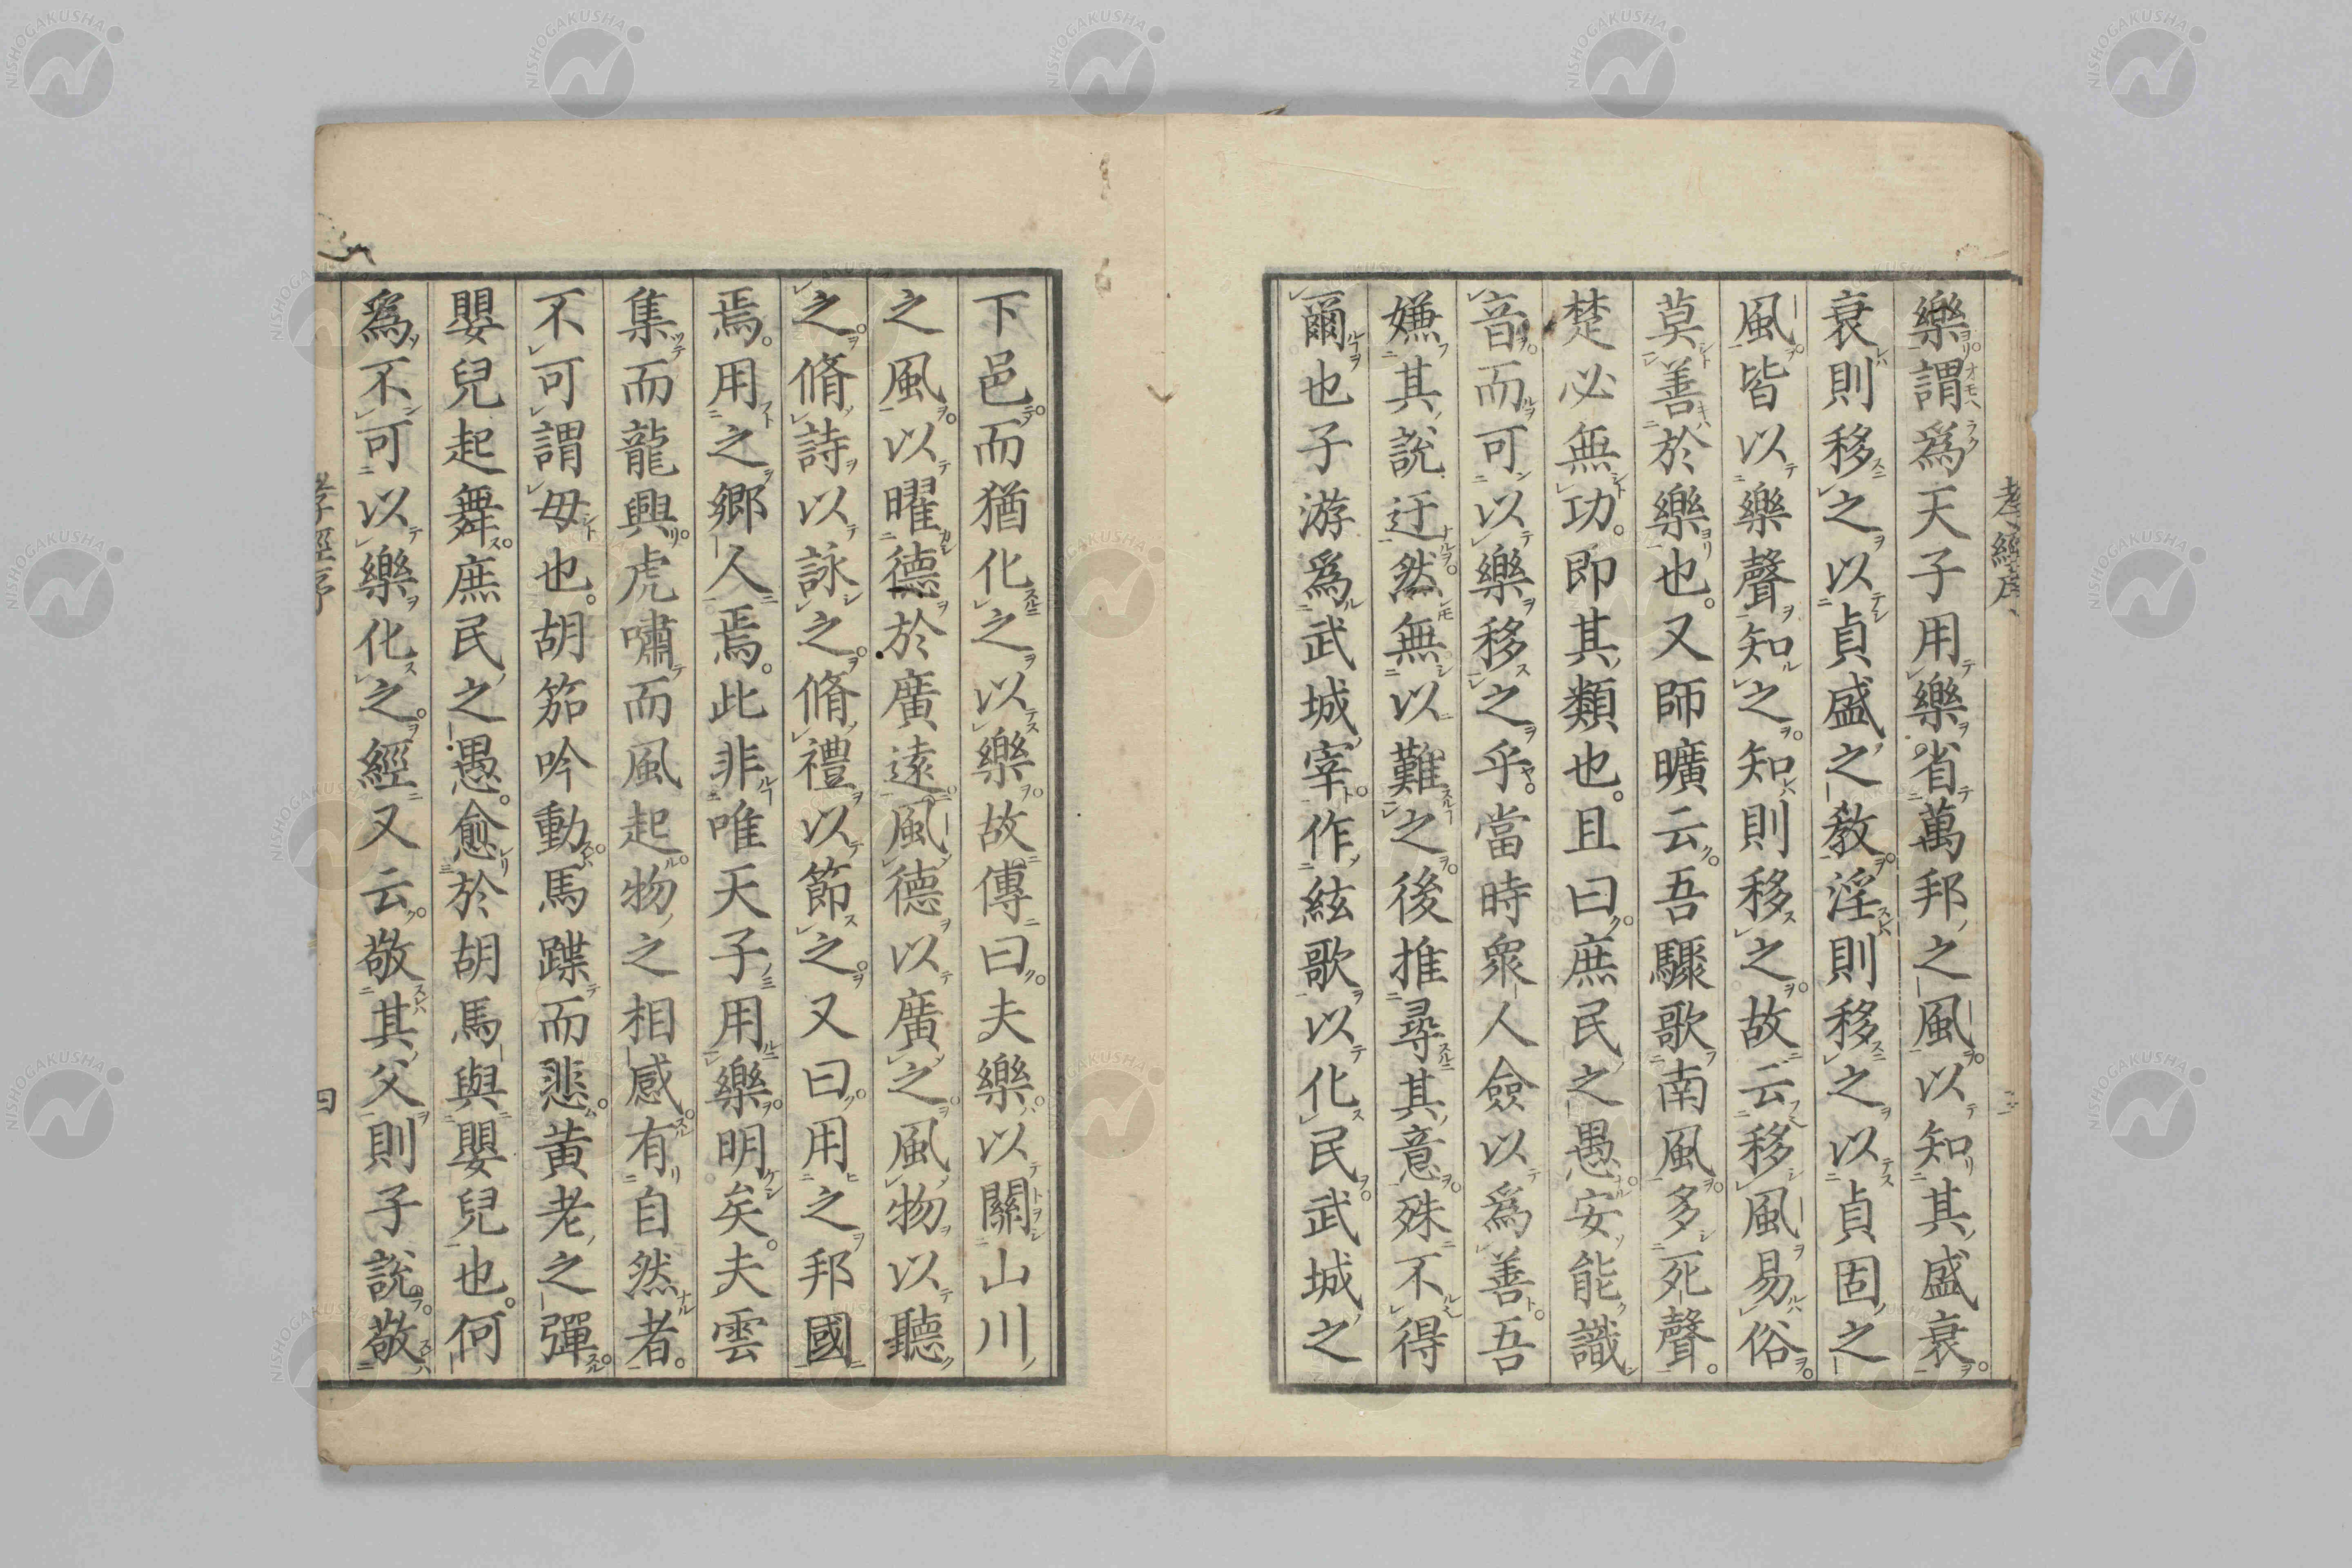 孝經序
樂謂爲天子用樂省萬邦之風以知其盛衰
衰則移之以貞盛之敎淫則移之以貞固之
風皆以樂聲知之知則移之故云移風易俗
莫善於樂也又師曠云吾驟歌南風多死聲
楚必無功即其類也且曰庶民之愚安能識
音而可以樂移之乎當時衆人僉以爲善吾
嫌其說迂然無以難之後推尋其意殊不得
爾也子游爲武城宰作絃歌以化民武城之
下邑而猶化之以樂故傳曰夫樂以關山川
之風以曜德於廣遠風德以廣之風物以聽
之脩詩以詠之脩禮以節之又曰用之邦國
焉用之鄉人焉此非唯天子用樂明矣夫雲
集而龍興虎嘯而風起物之相感有自然者
不可謂毋也胡笳吟動馬蹀而悲黄老之彈
嬰兒起舞庶民之愚愈於胡馬與嬰兒也何
爲不可以樂化之經又云敬其父則子說敬
孝經序
四